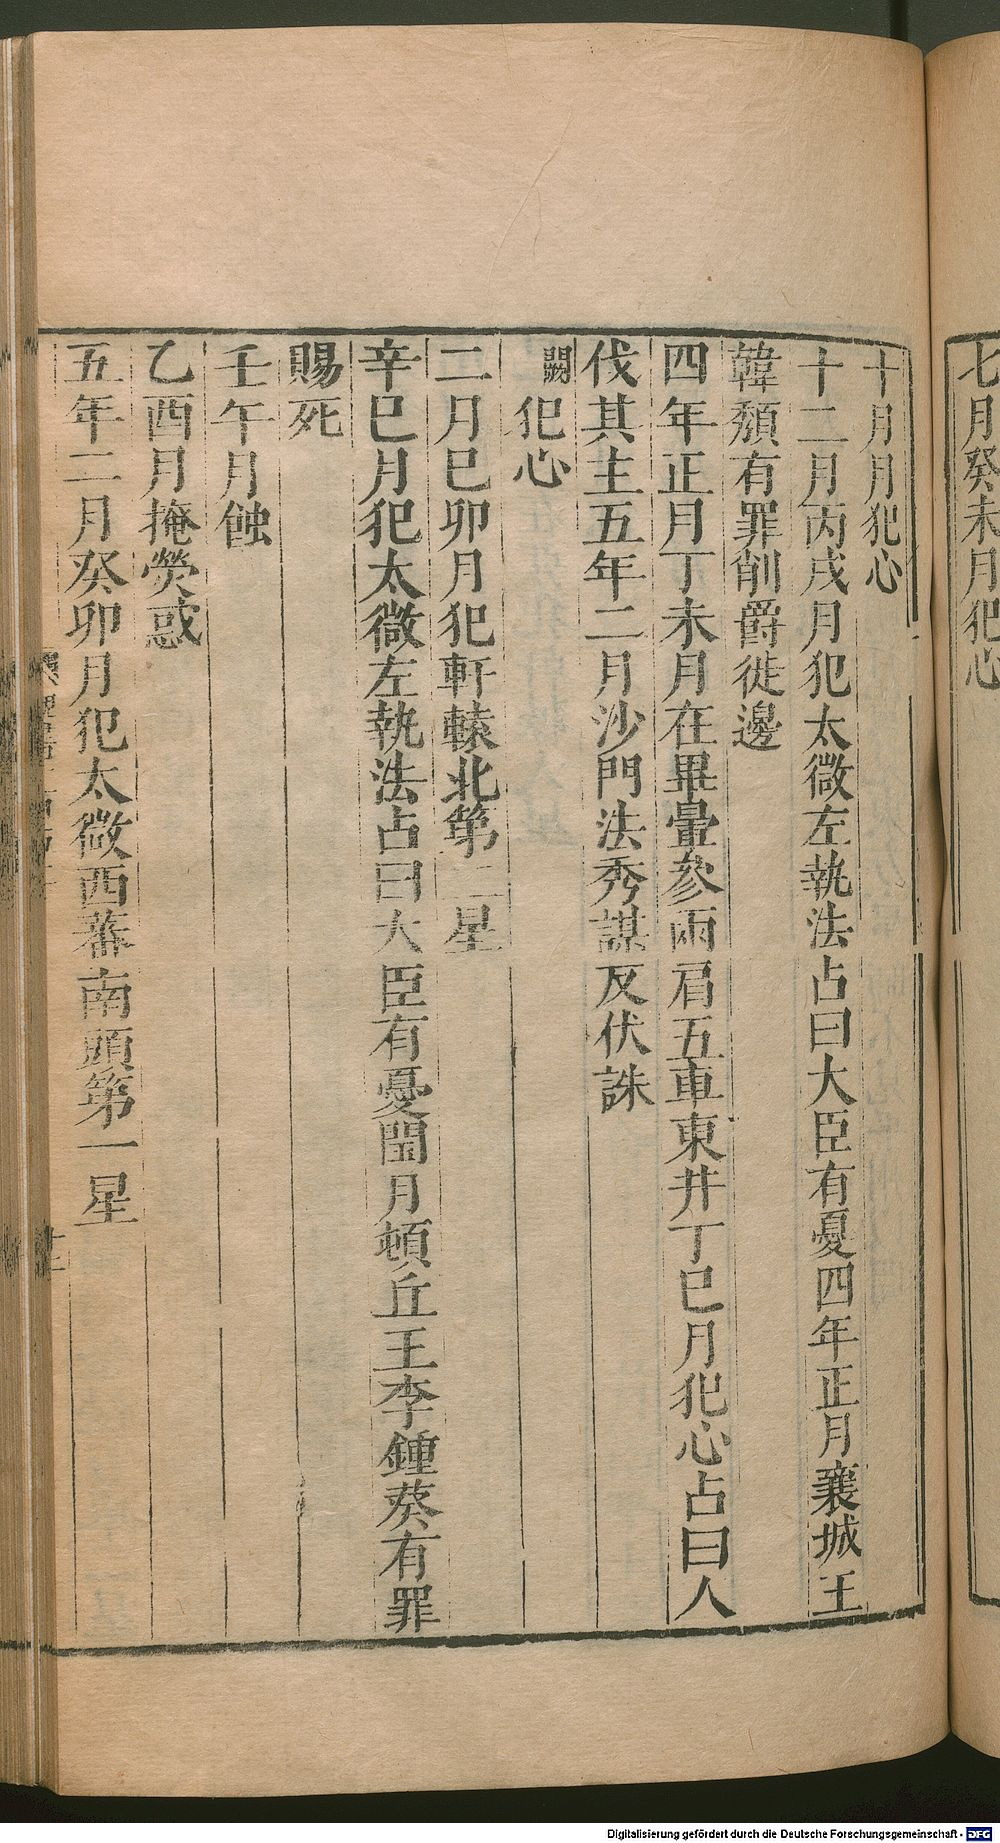 七月癸未月犯心
十月月犯心
十二月丙戌月犯太微左執法占曰大臣有憂四年正月襄城王
韓頹有罪削爵徙邊
四年正月丁未月在畢暈參兩肩五車東井丁巳月犯心占曰人
伐其主五年二月沙門法秀謀反伏誅
闕犯心
二月巳卯月犯軒轅北第二星
辛巳月犯太微左執法占曰大臣有憂閏月頓丘王李鍾葵有罪
賜死
壬午月蝕
乙酉月掩熒惑
五年二月癸卯月犯太微西蕃南頭第一星
Digitalisierung gefördert durch die Deutsche Forschungsgemeinschaft - DFG